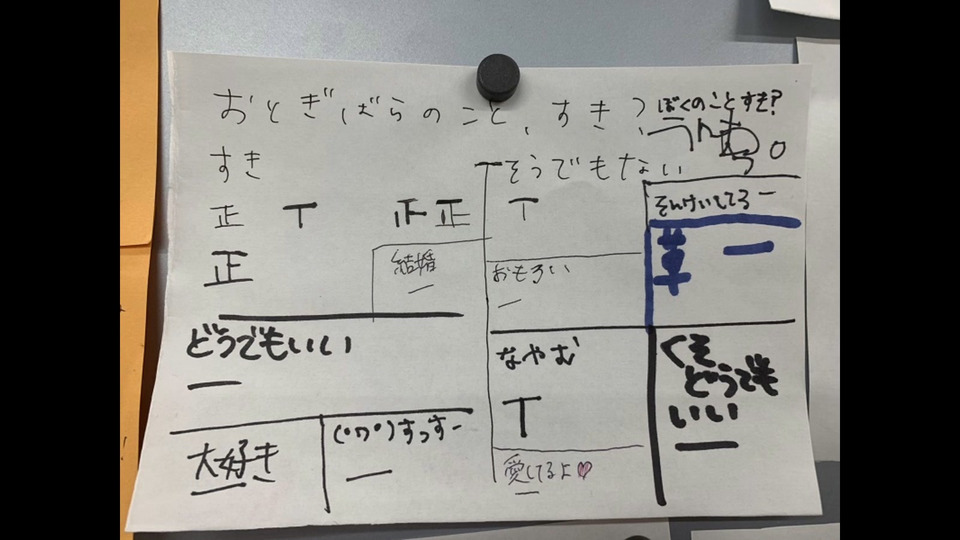 おとぎばらのこと、すき?
ぼくのことすき?
すき
そうでもない
正 T 正 正
正
結婚
一
T
おもろい
一
そんけいしてるー
草 一
どうでもいい
一
なやむ
T
くそ
どうでも
いい
一
大好き
一
(°ワ°)すっすー
一
愛してるよ♡
一